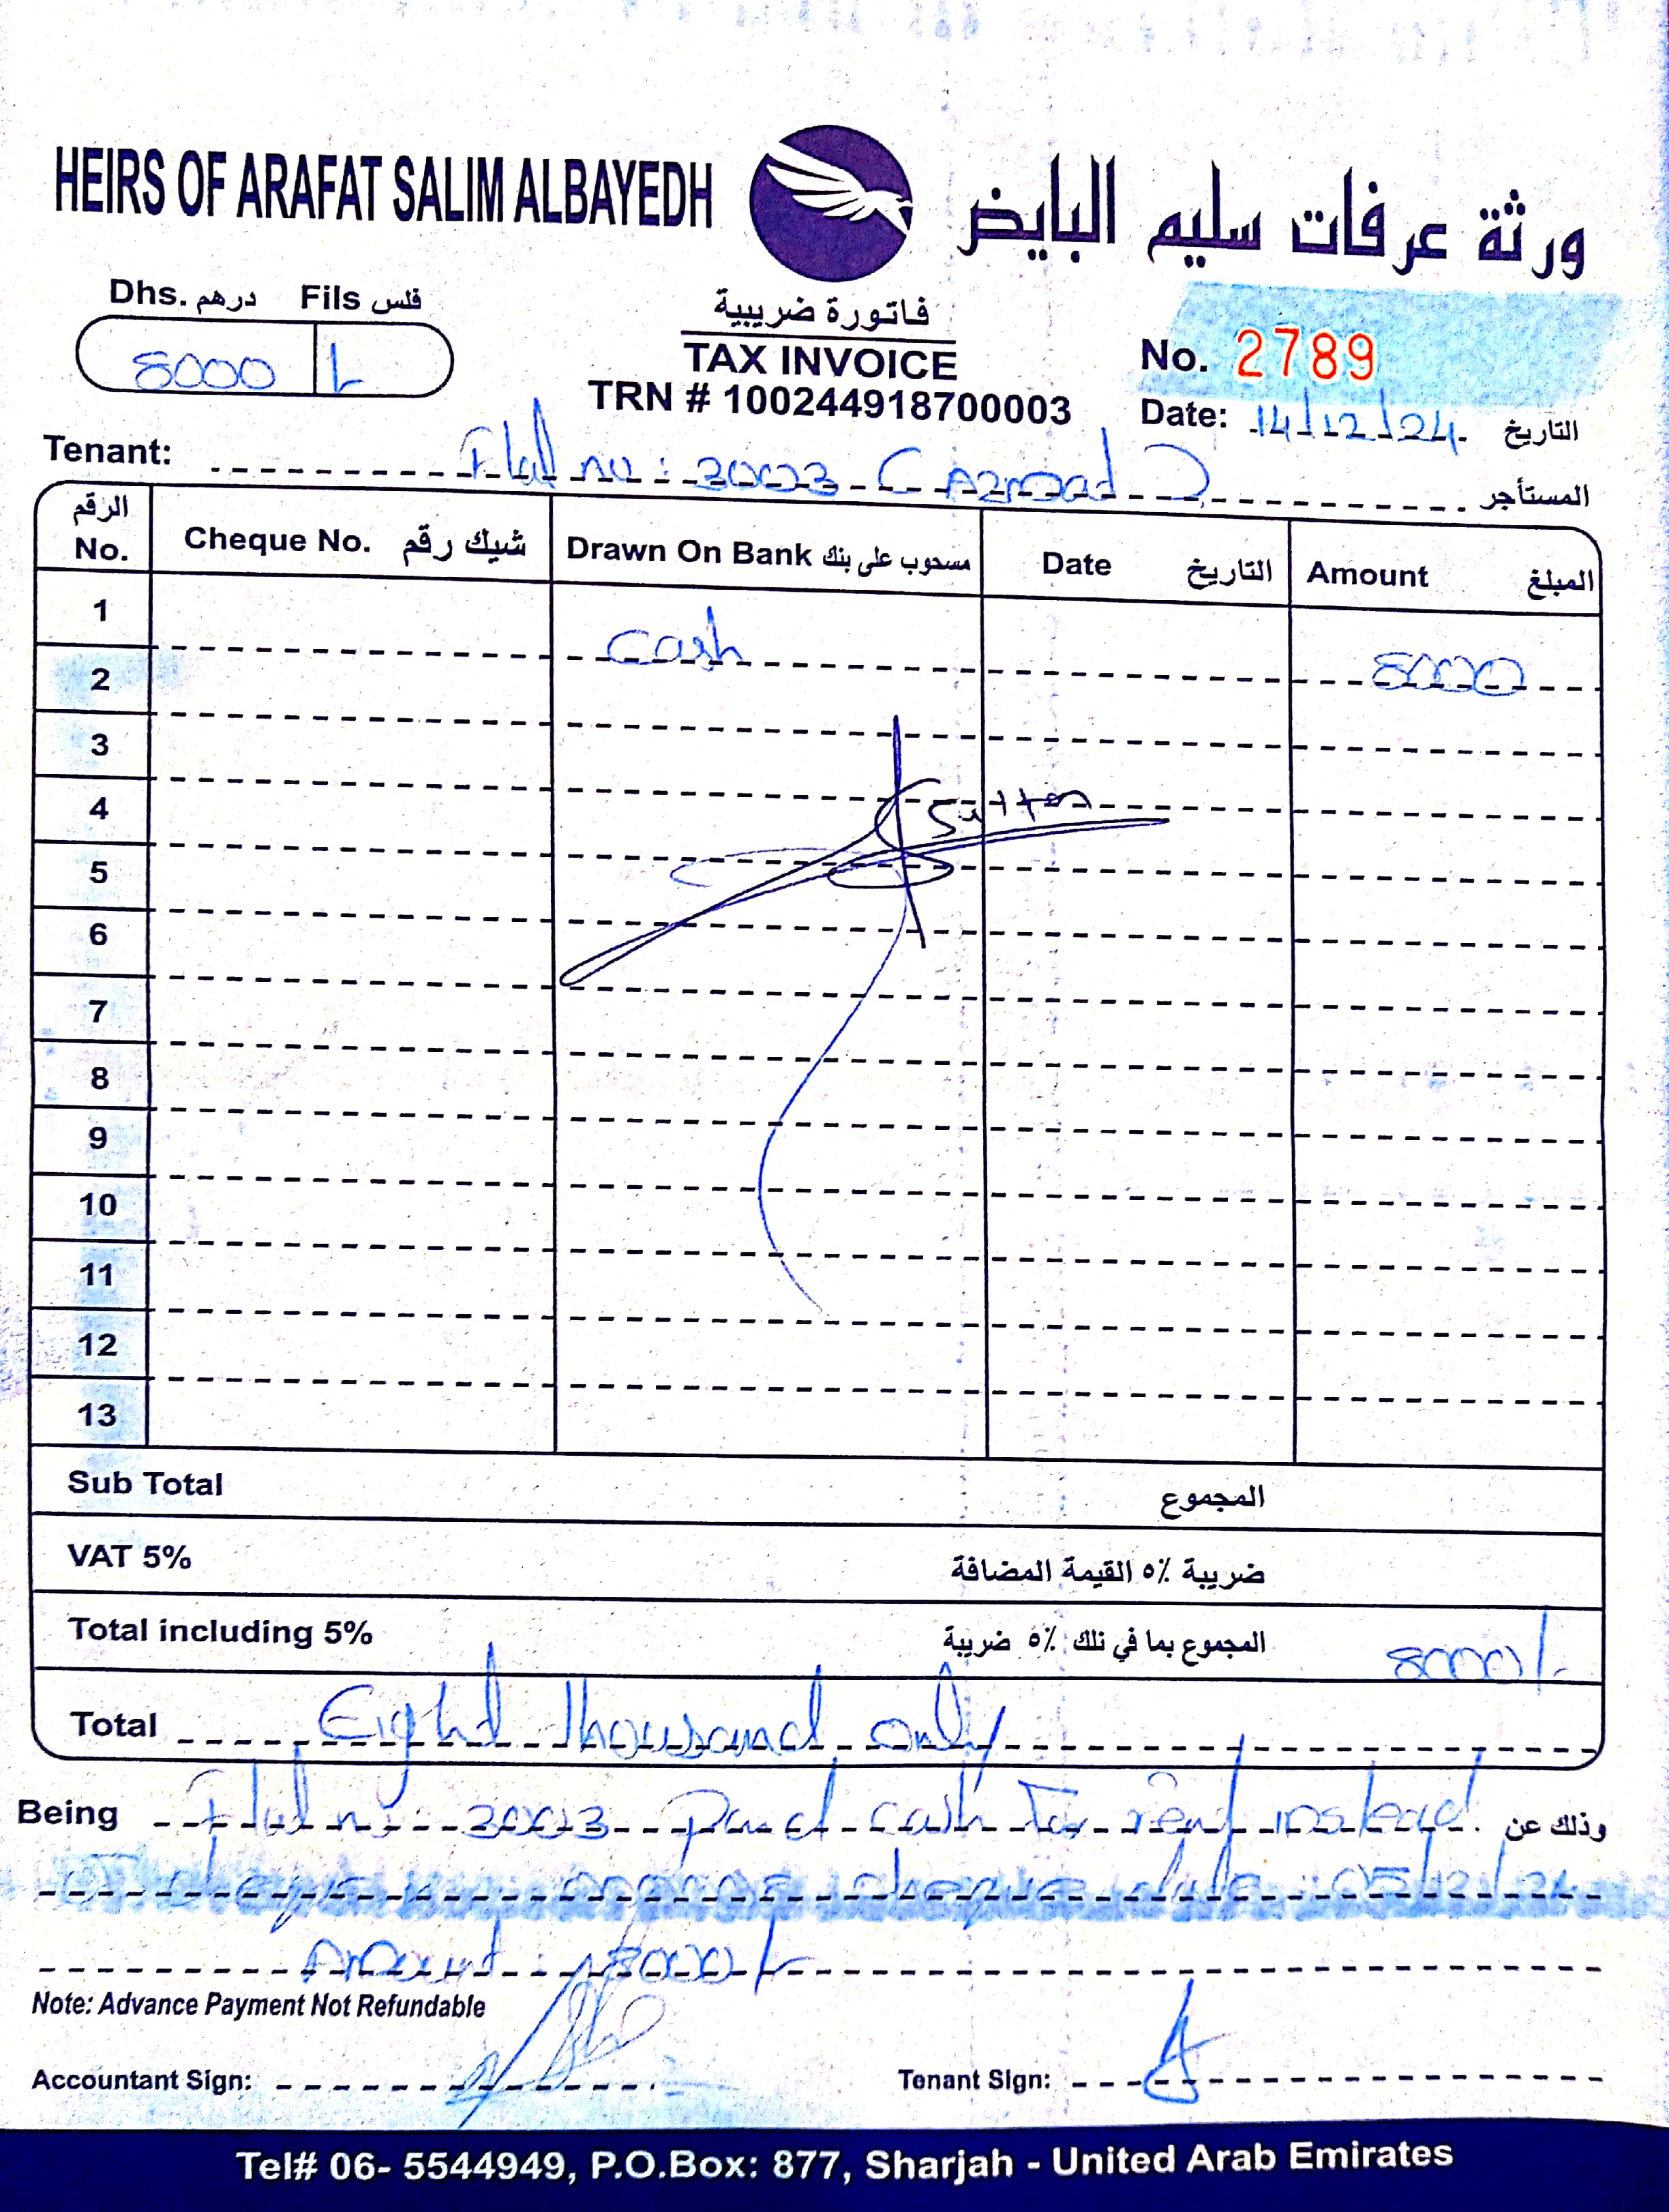 HEIRS OF ARAFAT SALIM ALBAYEDH ورثة عرفات سليم البايض
Dhs. درهم Fils فلس
8000 /-
فاتورة ضريبية
TAX INVOICE
TRN # 100244918700003
No. 2789
Date: 14/12/24 التاريخ
Tenant: Flat no: 3003 ( Azmad ) المستأجر
الرقم No. Cheque No. شيك رقم Drawn On Bank مسحوب على بنك Date التاريخ Amount المبلغ
1 Cash 8000
2
3
4
5
6
7
8
9
10
11
12
13
Sub Total المجموع
VAT 5% ضريبة ٥٪ القيمة المضافة
Total including 5% المجموع بما في ذلك ٥٪ ضريبة 8000/-
Total Eight thousand only
Being Flat no: 3003 Paid cash for rent instead وذلك عن
of cheque cheque date: 05/12/24
Amount: 8000/-
Note: Advance Payment Not Refundable
Accountant Sign: Tenant Sign:
Tel# 06- 5544949, P.O.Box: 877, Sharjah - United Arab Emirates